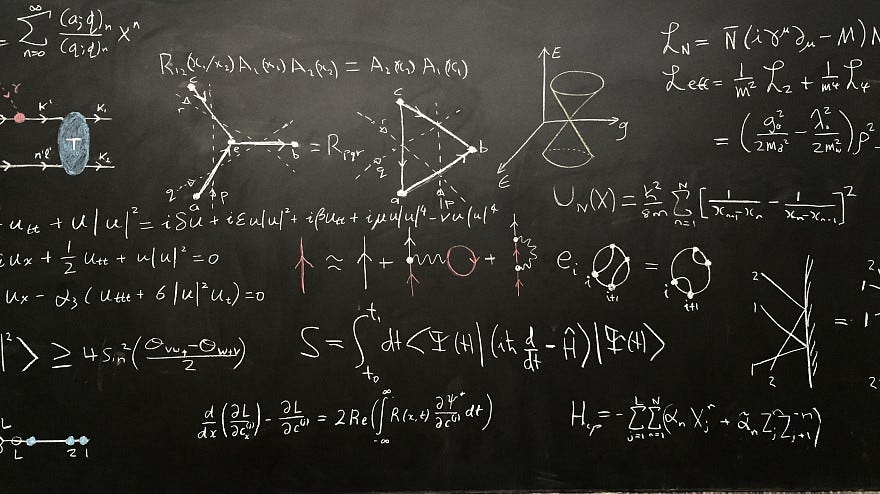 = ∑_{n=0}^{∞} (a;q)_n / (q;q)_n X^n
R_{12}(x_1/x_2) A_1(x_1) A_2(x_2) = A_2(x_2) A_1(x_1)
L_N = N̄ (iγ^μ ∂_μ - M) N
L_eff = 1/m² L_2 + 1/m⁴ L_4
= (g_0²/2m_σ² - λ_0²/2m_v²) ρ² -
c
r
e
b
q
a
p
= R_{pqr}
c
r
b
q
a
p
E
g
ε
K'
K_1
T
n'l'
K_2
U_N(X) = ħ²/8m ∑_{n=1}^{N} [1/(x_{n+1} - x_n) - 1/(x_n - x_{n-1})]²
- u_{tt} + u|u|² = iδu + iεu|u|² + iβu_{tt} + iμu|u|⁴ - νu|u|⁴
i u_x + 1/2 u_{tt} + u|u|² = 0
u_x - α_3 (u_{ttt} + 6|u|² u_t) = 0
≈ + +
e_i
i
i+1
=
i
i+1
2
1
1
2
=
|²⟩ ≥ 4 Sin²((Θ_{vw+} - Θ_{w+v})/2)
S = ∫_{t_0}^{t_1} dt ⟨Ψ(t)| (iħ d/dt - Ĥ) |Ψ(t)⟩
d/dx (∂L/∂c_x^{(j)}) - ∂L/∂c^{(j)} = 2Re(∫_{-∞}^{∞} R(x,t) ∂Ψ*/∂c^{(j)} dt)
H_{cp} = -∑_{j=1}^{L} ∑_{n=1}^{N} (α_n X_j^n + α̃_n Z_j^n Z_{j+1}^{-n})
L
L
2 1